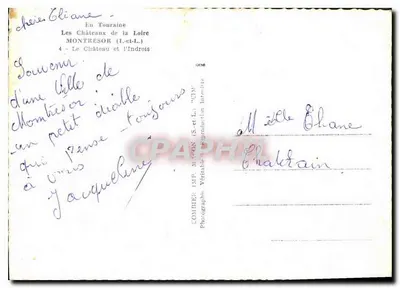 chère Eliane.
En Touraine
Les Châteaux de la Loire
MONTRÉSOR (I.-et-L.)
4 - Le Château et l'Indrois
Souvenir
d'une belle de
Montrésor
un petit diable
qui pense toujours
à vous
Jacqueline
COMBIER IMP. MACON (S.-et-L.) "CIM"
Photographie Véritable Reproduction Interdite
Melle Eliane
CPAPHIL